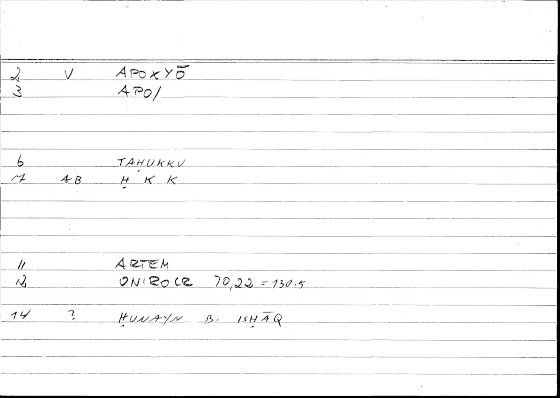 2 V APOXYŌ
3 APO/
6 TAḤUKKU
7 AB Ḥ K K
11 ARTEM
12 ONIROCR 70,22 = 130.5
14 ? ḤUNAYN B. ISḤĀQ